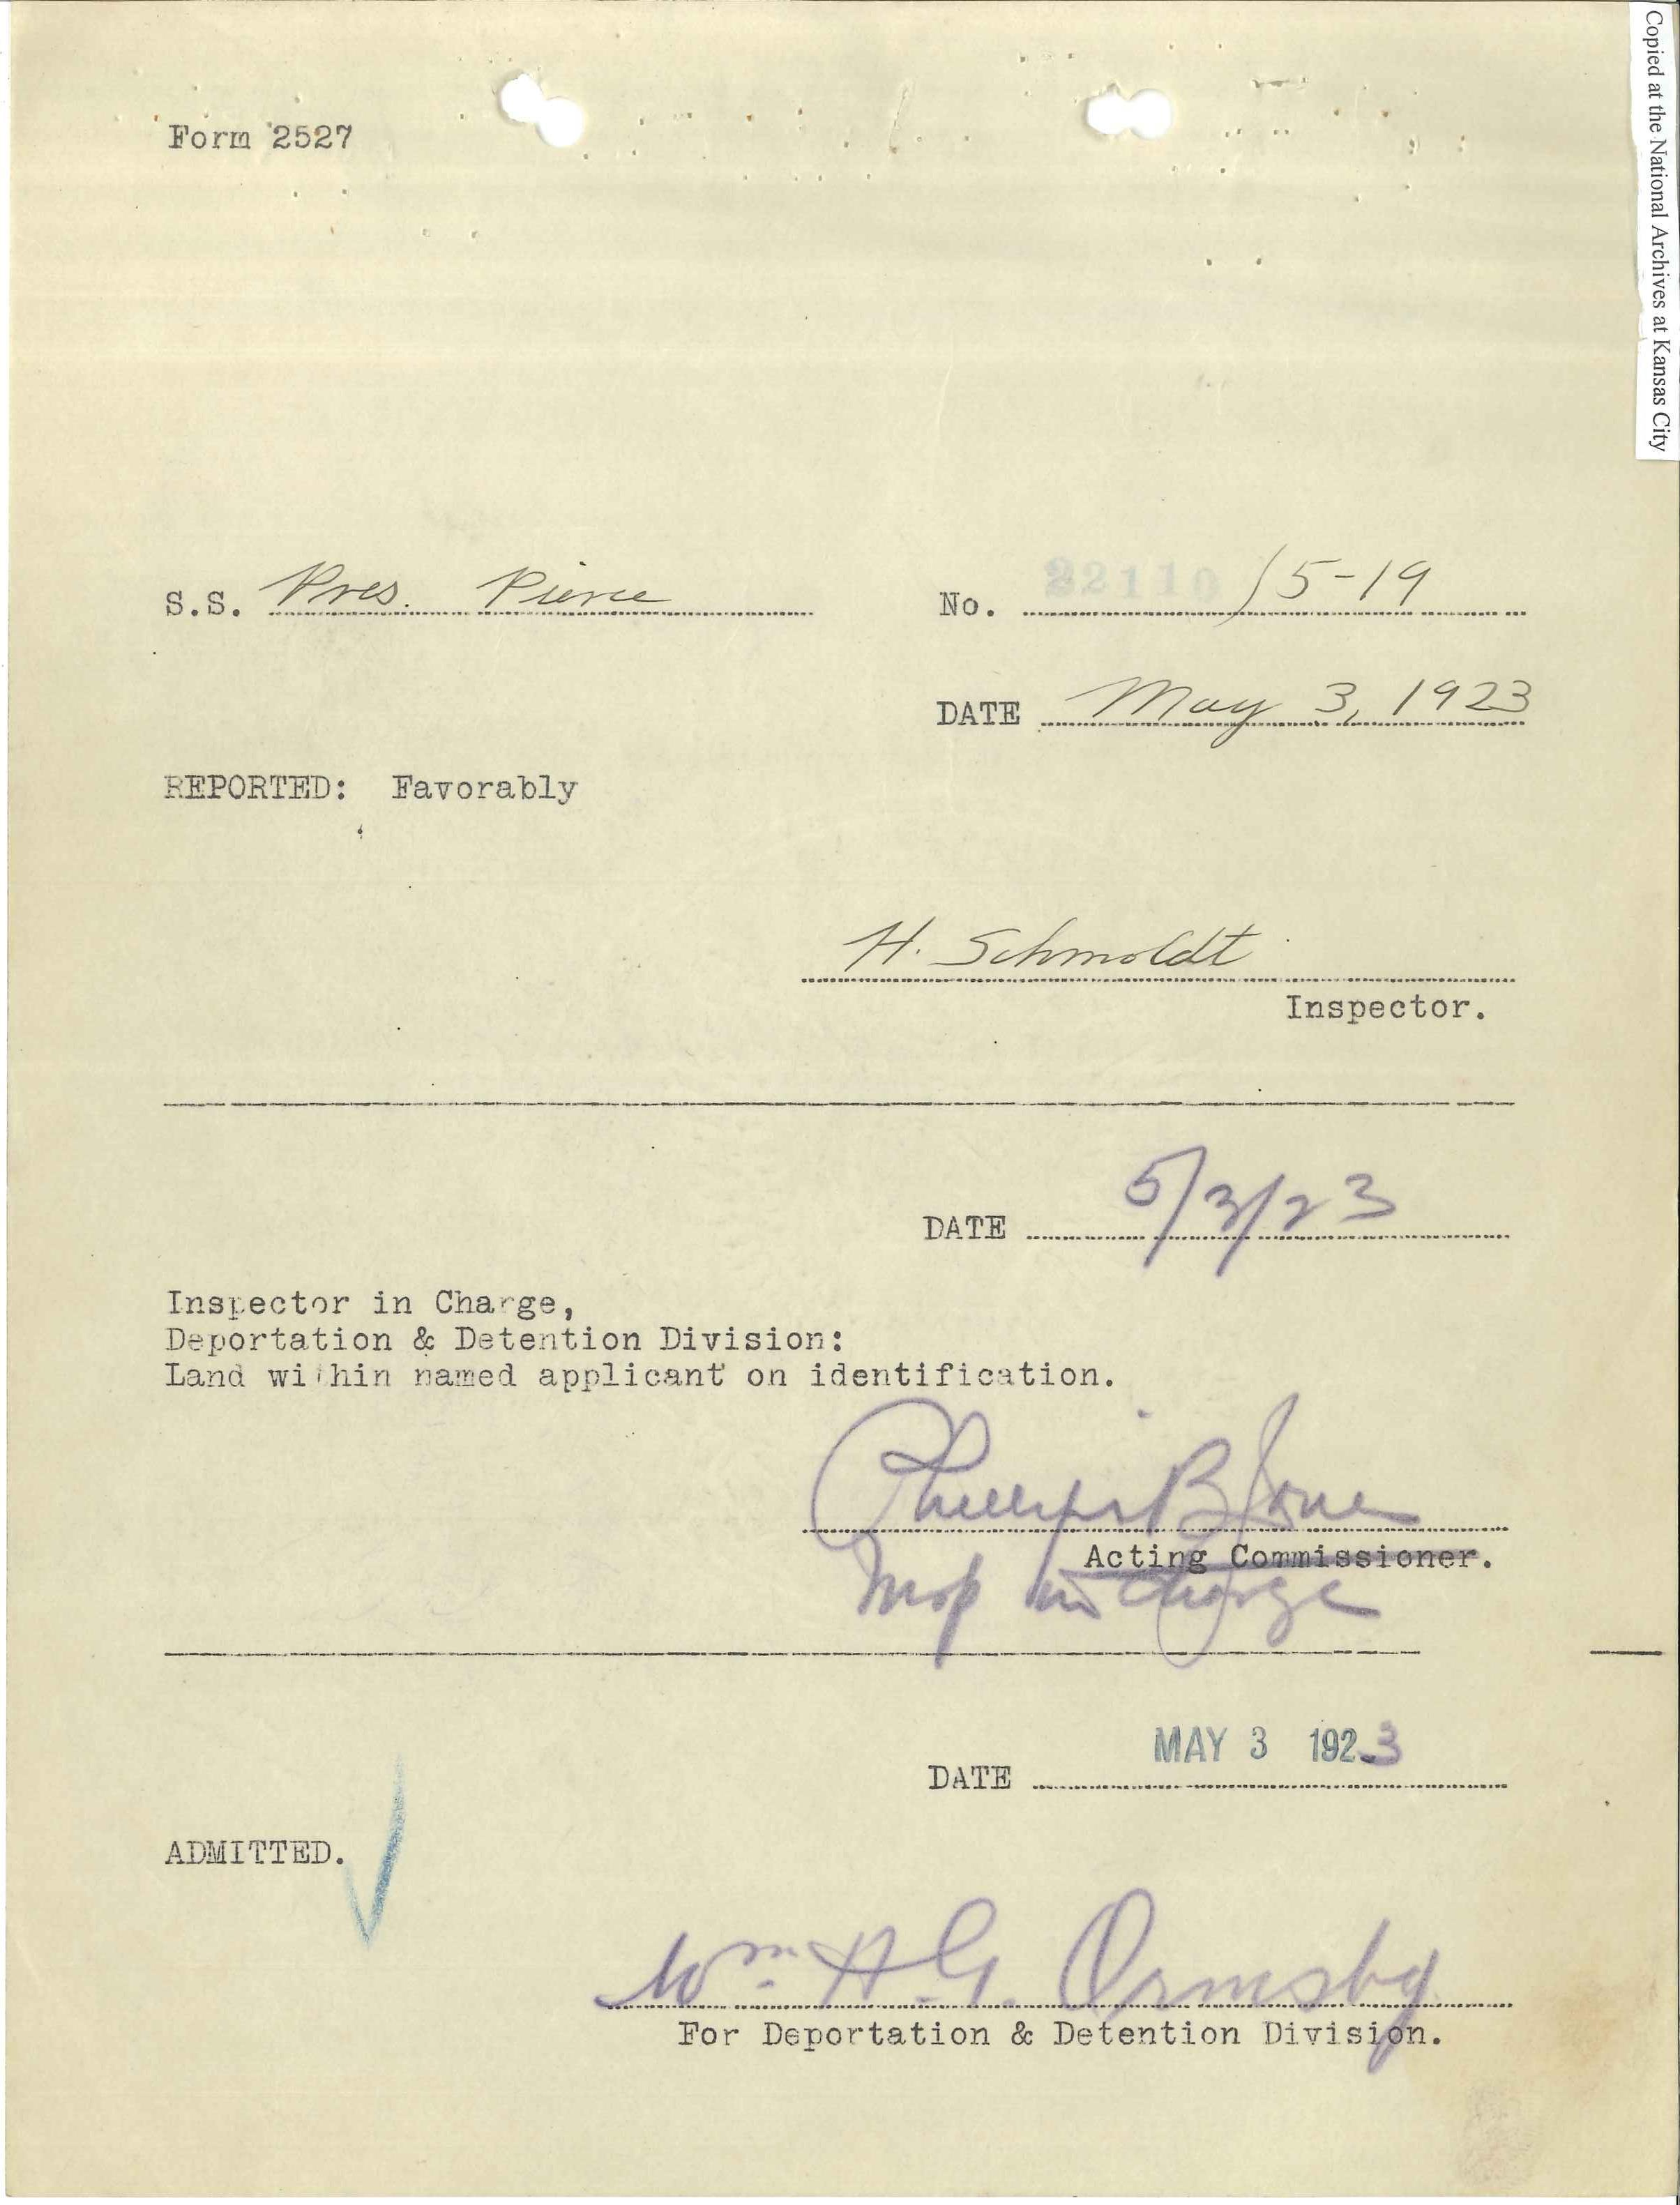 Copied at the National Archives at Kansas City
Form 2527
S.S. Pres. Pierce
No. 22110/5-19
DATE May 3, 1923
REPORTED: Favorably
H. Schmoldt
Inspector.
DATE 5/3/23
Inspector in Charge,
Deportation & Detention Division:
Land within named applicant on identification.
Phillips B Jones
Acting Commissioner.
Insp in Charge
DATE MAY 3 1923
ADMITTED.
Wm. H. G. Ormsby
For Deportation & Detention Division.